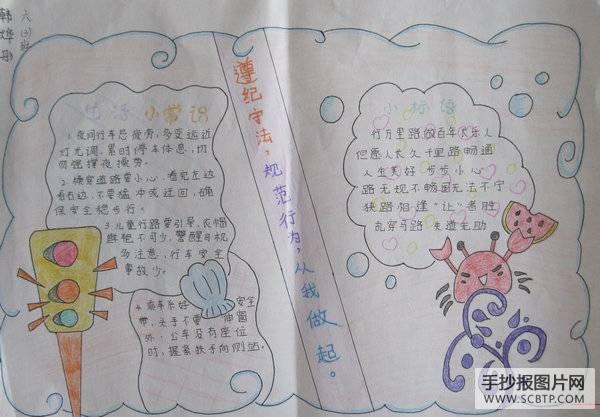 六(3)班
韩烨丹
生活小常识
1.夜间行车忌疲劳,多变远近
灯光调,累时停车休息,切
勿强撑夜疲劳。
2.横穿道路要小心,看完左边
看右边,不要猛冲或迂回,确
保安全稳步行。
3.儿童行路要引导,衣帽
鲜艳不可少,警醒司机
多注意,行车安全
事故少。
4.乘车系好安全
带,头手不要伸窗
外,公车没有座位
时,握紧扶手向侧站。
遵纪守法,规范行为,从我做起。
小标语
行万里路做百年快乐人
但愿人长久千里路畅通
人生美好 步步小心
路无规不畅国无法不宁
狭路相逢“让”者胜
乱穿马路 失道无助
手抄报图片网
WWW.SCBTP.COM